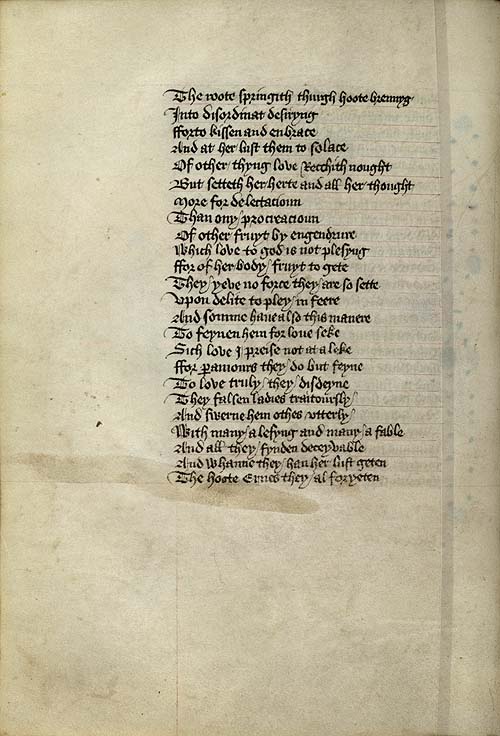 The roote springith thurgh hoote brennyg
Into disordinat desiryng
fforto kissen and enbrace
And at her lust them to solace
Of other thyng love Recchith nought
But setteth her herte and all her thought
More for delectacioun
Than ony procreacioun
Of other fruyt by engendrure
Which love to god is not plesyng
ffor of her body fruyt to gete
They yeve no force they are so sette
Upon delite to pley in feere
And somme have also this manere
To feynen hem for love seke
Sich love I preise not at a leke
ffor paramours they do but feyne
To love truly they disdeyne
They falsen ladies traitoursly
And swerne hem othes utterly
With many a lesyng and many a fable
And all they fynden deceyvable
And whanne they han her lust geten
The hoote Ernes they al foryeten